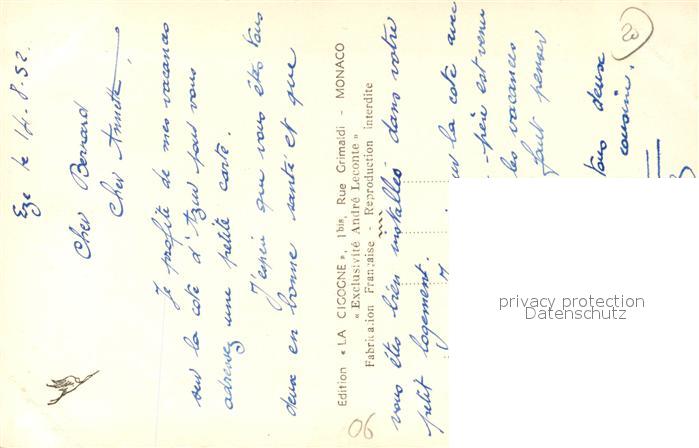 Eze le 14-8-52.
Cher Bernard
Cher Annette,
Je profite de mes vacances
sur la cote d'Azur pour vous
adressez une petite carte.
J'espère que vous êtes tous
deux en bonne santé et que
Edition « LA CIGOGNE », 1bis, Rue Grimaldi - MONACO
« Exclusivité André Leconte »
Fabrication Française - Reproduction interdite
vous êtes bien installés dans votre
petit logement.
sur la cote avec
-père est venu
les vacances
faut penser
tous deux
cousine.
privacy protection
Datenschutz
06